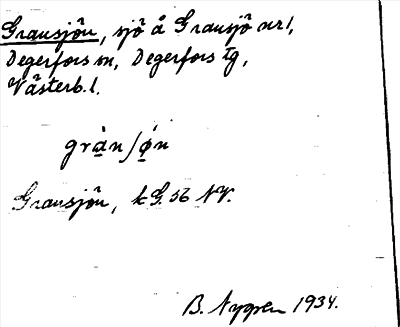 Gransjön, sjö å Gransjö nr 1,
Degerfors sn, Degerfors tg,
Västerb. l.
gràn∫ǿn
Gransjön, kG. 56 NV.
B. Nygren 1934.